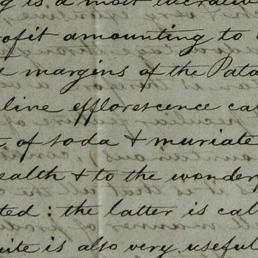 is a most lucrative
rofit amounting to
margins of the Pata
line efflorescence ca
of soda & muriate
ealth & to the wonder
ted: the latter is cal
ite is also very useful